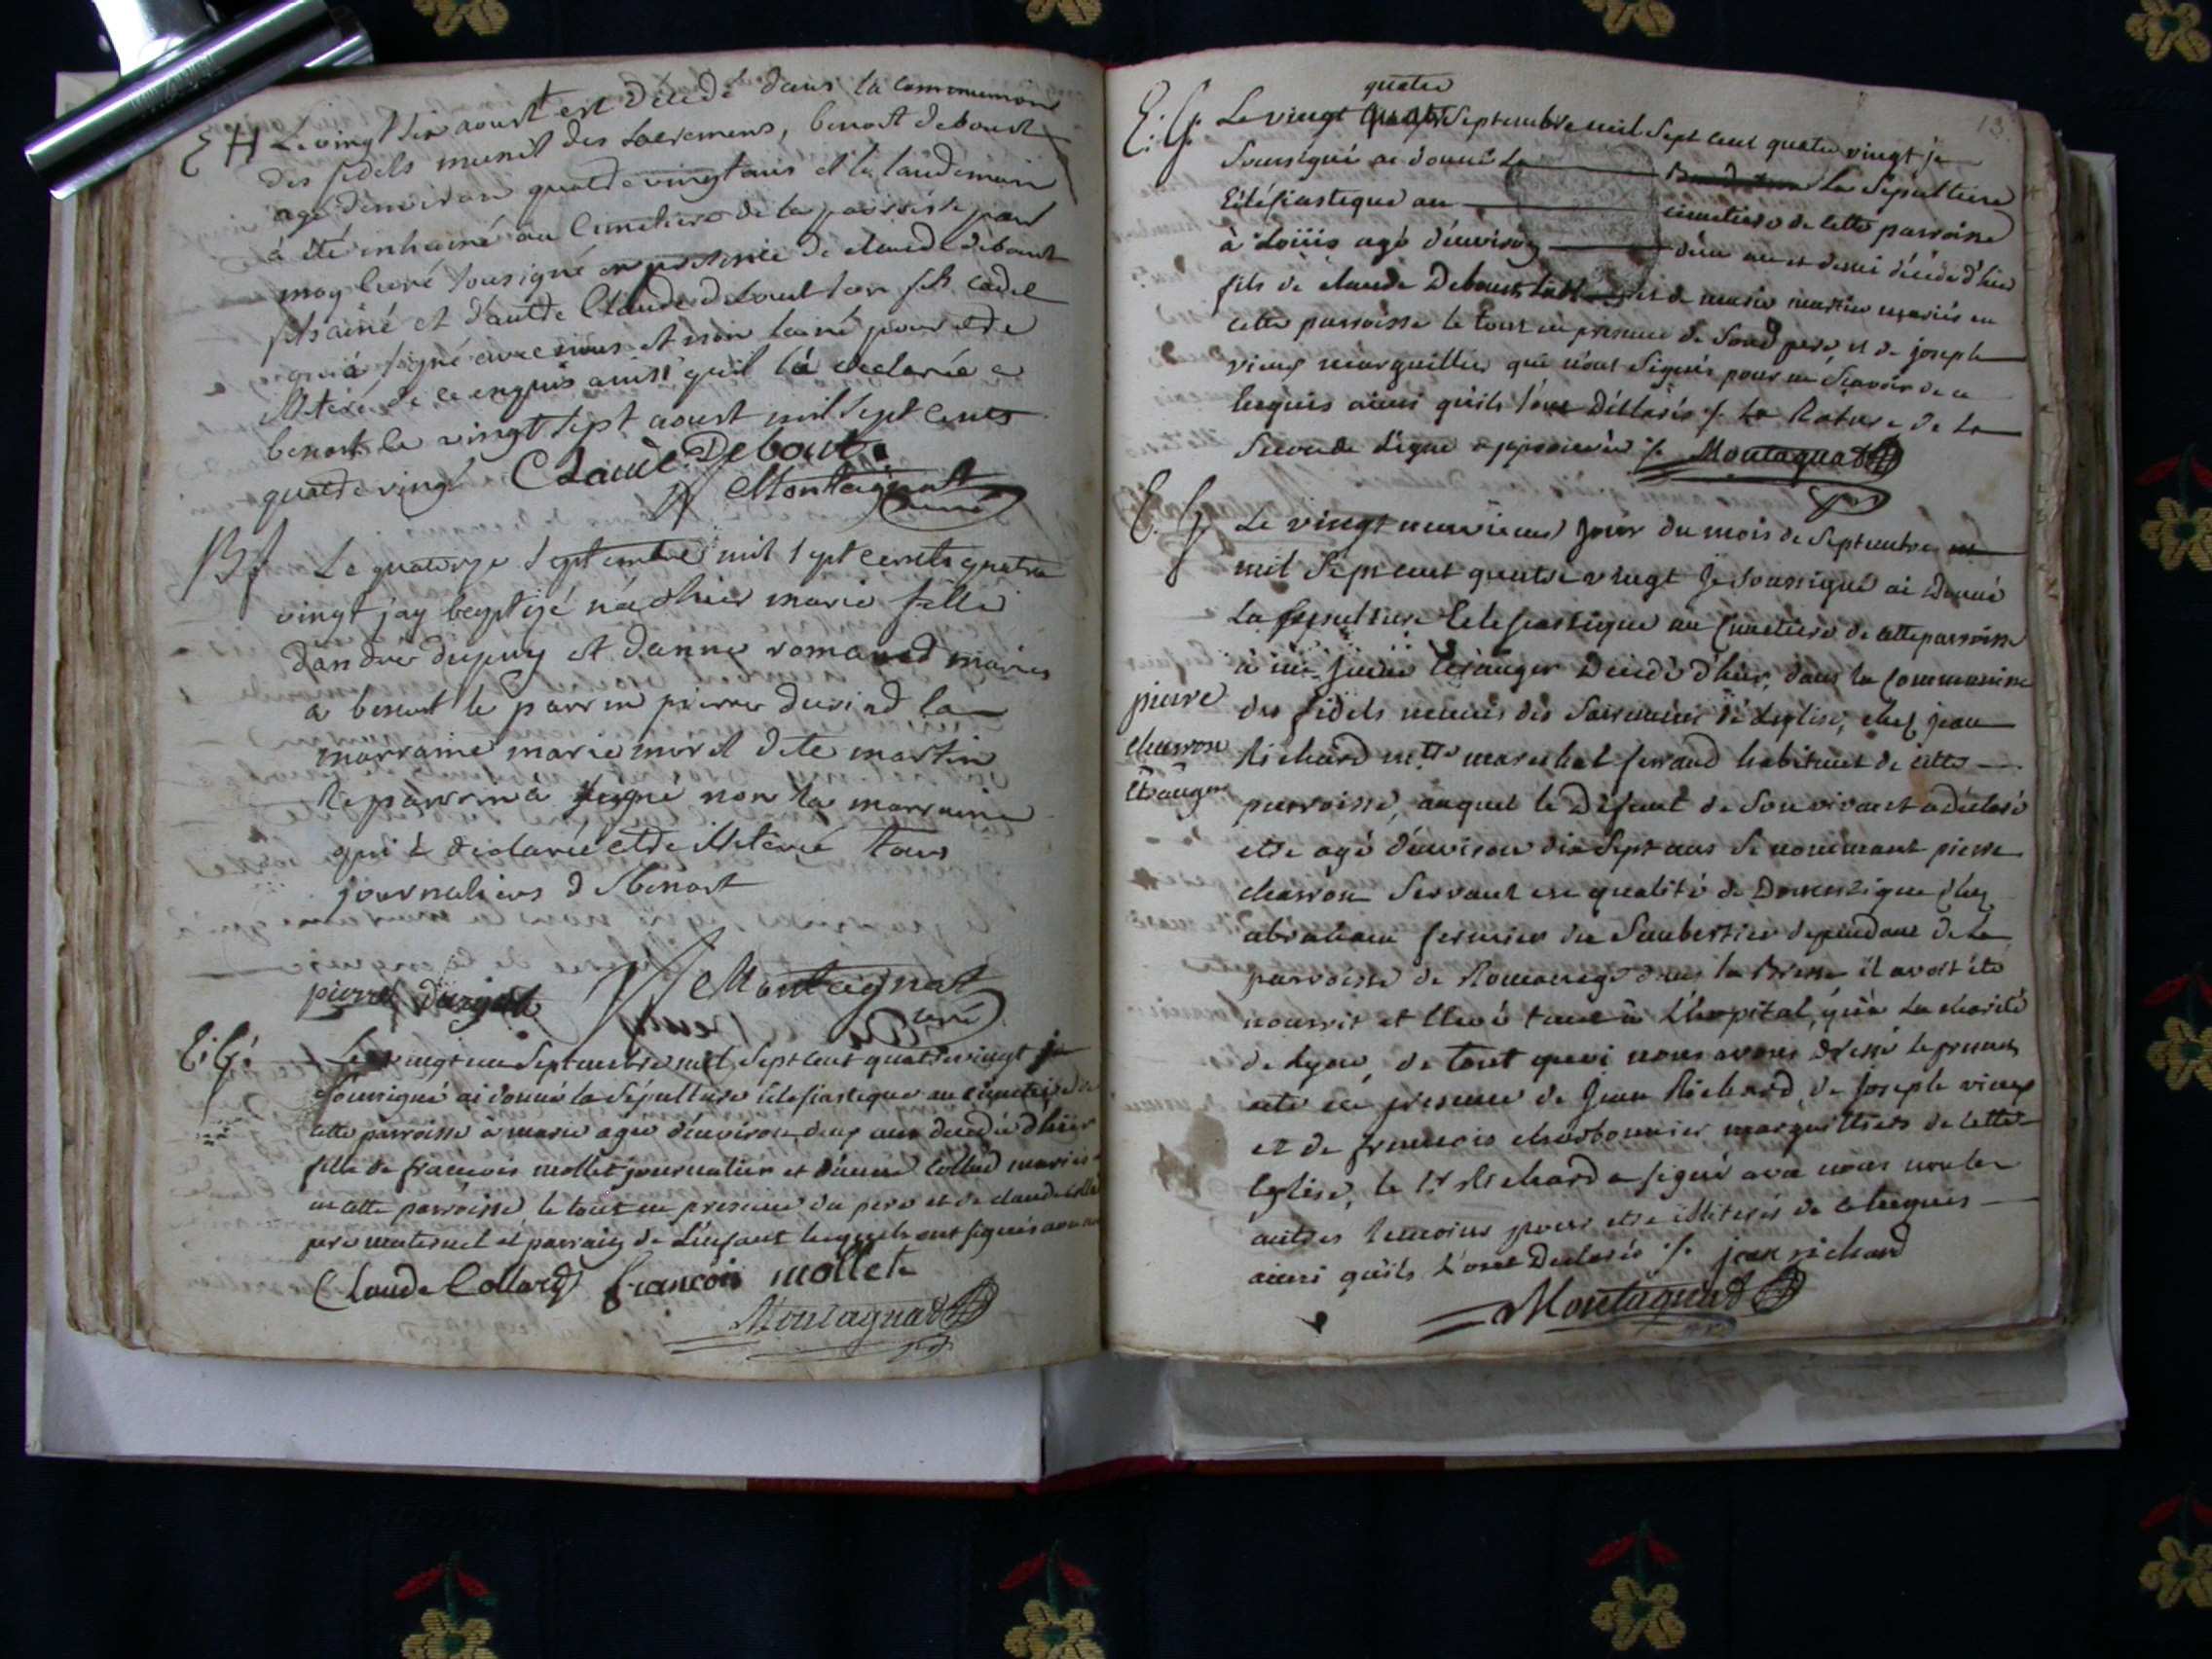 E H Le vingt six aoust est décédé dans la communion
des fidels munit des sacremens, benoit deboust
agé denviron quatre vingt ans et le landemain
a été inhumé au Cimetiere de la parroisse par
moy Curé sousigné en presence de claude deboust
fils ainé et d'autre Claude deboust son fils cadet
qui a signé avec nous et non lainé pour etre
illiteré de ce enquis ainsi qu'il l'a declaré a
benost le vingt sept aoust mil sept cents
quatre vingt Claude Deboust
Montaignat
curé
Le quatorze Septembre mil sept cents quatre
vingt jay baptizé née d'hier marie fille
dandré dupuy et danne romand mariés
a benost le parrin pierre durind la
marraine marie morel dite martin
le parrin a signé non la marraine
qui a declaré etre illiterée tous
journaliers d St benost
pierre
Montaignat
curé
E: G: Le vingt un Septembre mil Sept cent quatre vingt je
soussigné ai donné la sépulture éclésiastique au cimetiere de
cette parroisse à marie agée d'environ deux ans decedée d'hier
fille de françois mollet journalier et d'anne Collard mariés
en cette parroisse le tout en presence du pere et de claude Collard
pere maternel et parrain de L'enfant lesquels ont signés avec nous
Claude Collard françois mollet
Montagnat
13.
quatre
E: G: Le vingt Septembre mil Sept cent quatre vingt je
Soussigné ai donné La Sépulture
Eclésiastique au cimetiere de cette parroisse
à Loüis agé d'environ d'un an et demi décédé d'hier
fils de claude Deboust et de marie martin mariés en
cette parroisse le tout en presence de Sond pere, et de joseph
vieux marguillier qui n'ont Signés pour ne Scavoir de ce
Enquis ainsi qu'ils l'ont Déclarés ./. La Rature de La
Seconde Ligne approuvée ./. Montagnat
E. G. Le vingt neuvieme jour du mois de Septembre
mil Sept cent quatre vingt Je Soussigné ai Donné
La sepulture Eclesiastique au Cimetiere de cette parroisse
à un jeune Etranger Decédé d'hier, dans la Communion
pierre des fidels munis des Sacremens de L'eglise, chez jean
charron Richard mtre marechal ferrand habitant de cette
Etranger parroisse, auquel le Défunt de Son vivant a déclaré
etre agé d'environ dix Sept ans Se nommant pierre
charron Servant en qualité de Domestique chez
abraham fermier du Saubertier dependant de La
parroisse de Romanege dans la Bresse il avoit été
nourrit et Elevé tant à L'hopital, qu'à La charité
de Lyon, de tout quoi nous avons dressé le present
acte en presence de Jean Richard, de Joseph vieux
et de françois charbonnier marguilliers de cette
Eglise, le Sr Richard a signé avec nous non les
autres temoins pour etre illiterés de ce Enquis
ainsi qu'ils L'ont Declarés ./. jean richard
Montagnat